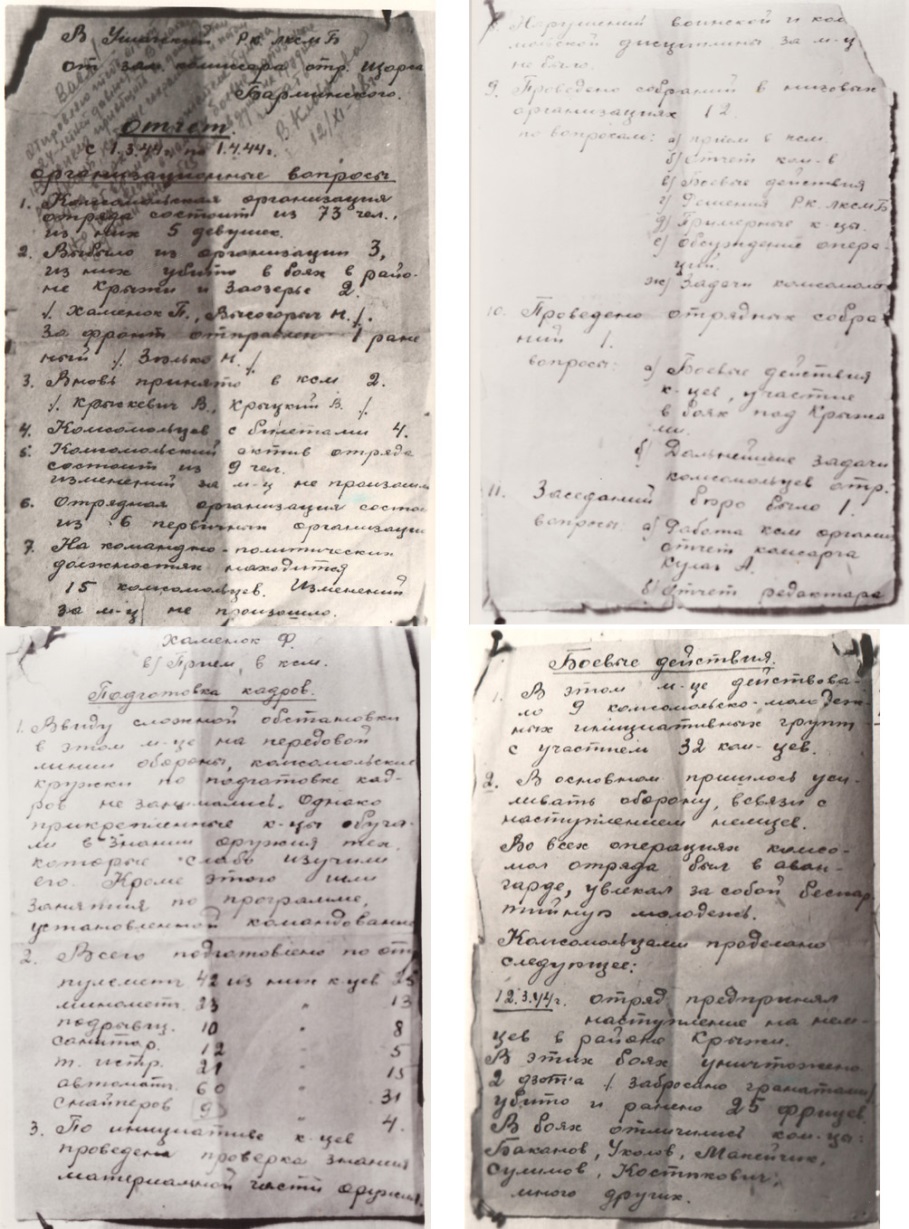 В Ушачский РК лксмБ
от зам. комиссара отр. Щорса
Барминского.
Отчет.
с 1.3.44г. по 1.4.44г.
организационные вопросы
1. Комсомольская организация
отряда состоит из 73 чел.,
из них 5 девушек.
2. Выбыло из организации 3,
из них убито в боях в райо-
не Крыжи и Заозерье 2.
/. Хаменок П., Высогорыч Н./.
За фронт отправлен 1 ране
ный /. Зюлько Н./.
3. Вновь принято в ксм 2.
/. Крюкевич В., Крыцкий В. /.
4. Комсомольцев с билетами 4.
5. Комсомольский актив отряда
состоит из 9 чел.
изменений за м-ц не произошл
6. Отрядная организация состои
из 6 первичных организаци
7. На командно-политических
должностях находится
15 комсомольцев. Изменений
за м-ц не произошло.
8. Нарушений воинской и ком
мольской дисциплины за м-ц
не было.
9. Проведено собраний в низовых
организациях 12
по вопросам: а) прием в ксм
б) Отчет ком-в
в) Боевые действия
г) Решения РК лксмБ
д) Примерные к-цы.
е) обсуждение опера-
ций.
ж) Задачи комсомоль
10. Проведено отрядных собра
ний 1.
вопросы: а) Боевые действия
к-цев, участие
в боях под Крыжа
ми.
б) Дальнейшие задачи
комсомольцев отр.
11. Заседаний бюро было 1.
вопросы а) Работа ксм органи
отчет комсорга
Кулаг А.
б) Отчет редактора
Хаменок Ф.
в) Прием в ксм.
Подготовка кадров.
1. Ввиду сложной обстановки
в этом м-це на передовой
линии обороны, комсомольские
кружки по подготовке кад-
ров не занимались. Однако
прикрепленные к-цы обуча-
ли в знании оружия тех,
которые слабо изучили
его. Кроме этого шли
занятия по программе,
установленной командовани
2. Всего подготовлено по отр
пулеметч. 42 из них к-цев 25
минометч. 23 " 13
подрывн. 10 " 8
санитар. 12 " 5
т. истр. 21 " 15
автоматч. 60 31
снайперов 9 4.
3. По инициативе к-цев
проведена проверка знания
материальной части оружия.
Боевые действия.
1. В этом м-це действова-
ло 9 комсомольско-молодеж-
ных инициативных групп
с участием 32 ком-цев.
2. В основном пришлось уси-
ливать оборону, всвязи с
наступлением немцев.
Во всех операциях комсо-
мол отряда был в аван-
гарде, увлекал за собой беспар
тийную молодежь.
Комсомольцами проделано
следующее:
12.3.44г. отряд предпринял
наступление на нем-
цев в районе Крыжи.
В этих боях уничтожено
2 дзота / забросано гранатами/
убито и ранено 25 фрицев
В боях отличились ком-цы:
Баканов, Уколов, Манейчик,
Сулимов, Костюкович,
много других.